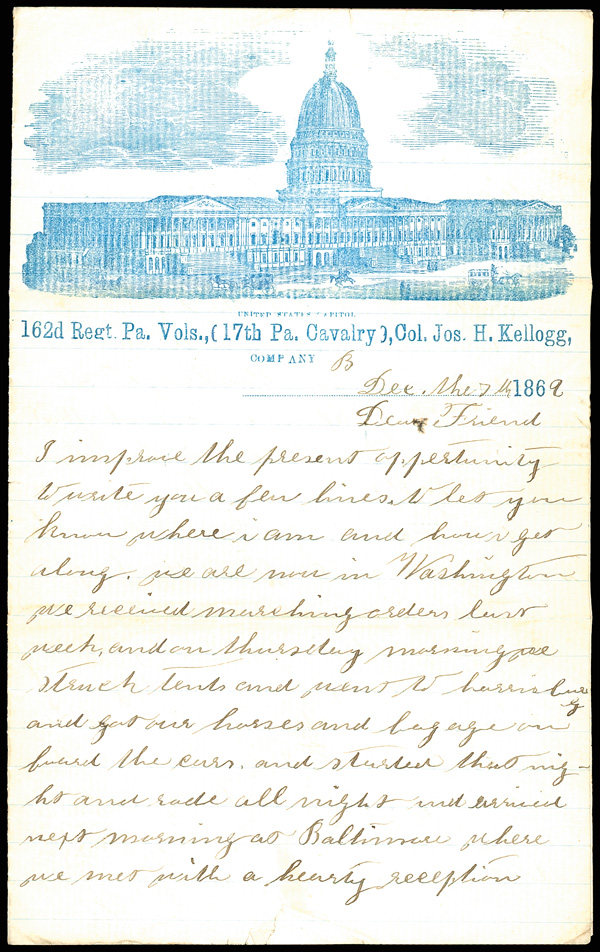 UNITED STATES CAPITOL
162d Regt. Pa. Vols., (17th Pa. Cavalry), Col. Jos. H. Kellogg,
COMPANY B
Dec. the 7th 1862
Dear Friend
I improve the present oppertunity
to write you a few lines. to let you
know where i am and how i get
along. we are now in Washington
we received marching orders last
week, and on thursday morning we
struck tents and went to harrisburg
and got our horses and bagage on
board the cars. and started that nig-
ht and rode all night and arrived
next morning at Baltimore where
we met with a hearty reception